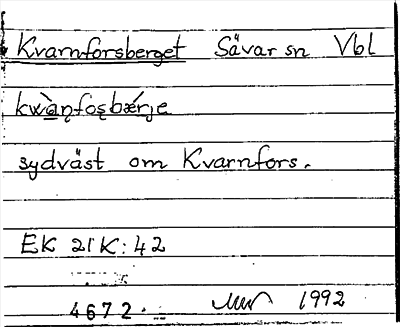 Kvarnforsberget Sävar sn Vbl
kwàṇfoșbǽrje
sydväst om Kvarnfors.
EK 21K:42
4672 1992